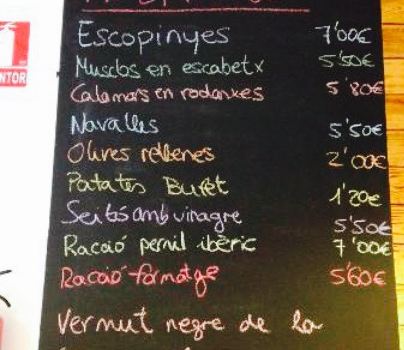 Escopinyes 7'00€
Musclos en escabetx 5'50€
Calamars en rodanxes 5'80€
Navalles 5'50€
Olives rellenes 2'00€
Patates Buret 1'20€
Seitó amb vinagre 5'50€
Racció pernil ibèric 7'00€
Racció formatge 5'60€
Vermut negre de la
NTOR